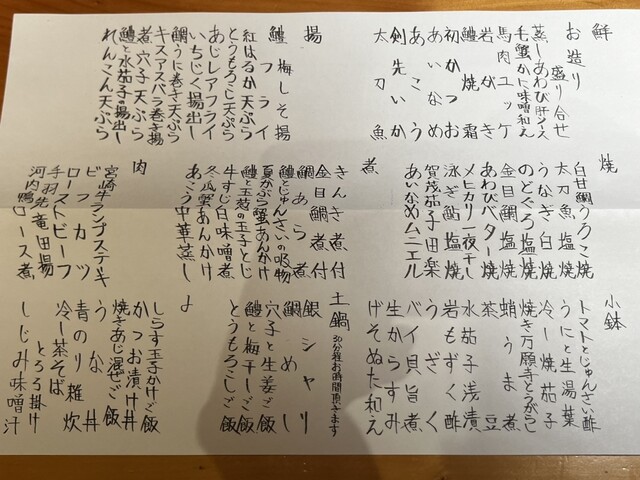 鮮
お造り盛り合せ
蒸しあわび肝ソース
毛蟹かに味噌和え
馬肉ユッケ
岩がき
鱧焼霜
初かつお
あいなめ
あこう
剣先いか
太刀魚
揚
鱧梅しそ揚
鱧フライ
紅はるか天ぷら
とうもろこし天ぷら
あじレアフライ
いちじく揚出し
鯛うに巻き天ぷら
キスアスパラ巻き揚
煮穴子天ぷら
鱧と水茄子の揚出し
れんこん天ぷら
焼
白甘鯛うろこ焼
太刀魚塩焼
うなぎ白焼
のどぐろ塩焼
金目鯛塩焼
あわびバター焼
メヒカリ一夜干し
泳ぎ鮎塩焼
賀茂茄子田楽
あいなめムニエル
煮
きんき煮付
金目鯛煮付
鯛あら煮
鱧とじゅんさいの吸物
夏かぶら蟹あんかけ
鱧と玉葱の玉子とじ
牛すじ白味噌煮
冬瓜蟹あんかけ
あこう中華蒸し
肉
宮崎牛ランプステーキ
ビフカツ
ローストビーフ
手羽先竜田揚
河内鴨ロース煮
小鉢
トマトとじゅんさい酢
うにと生湯葉
冷し焼茄子
焼き万願寺とうがらし
蛸うま煮
茶豆
水茄子浅漬
岩もずく酢
うざく
バイ貝旨煮
生からすみ
げそぬた和え
土鍋 30分程お時間頂きます
銀シャリ
鯛めし
穴子と生姜ご飯
鱧と梅干しご飯
とうもろこしご飯
〆
しらす玉子かけご飯
かつお漬け丼
焼きあじ混ぜご飯
うな丼
青のり雑炊
冷し茶そば
とろろ掛け
しじみ味噌汁